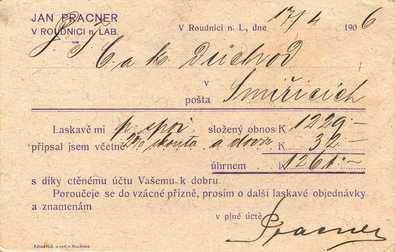 JAN PRACNER
V ROUDNICI n. LAB.
V Roudnici n. L., dne 17/4 1906
P. T.
C a k Důchod
v
pošta Smiřicích
Laskavě mi p. spoř. složený obnos K 1229·—
připsal jsem včetně 2% skonta a dovoz K 32·—
úhrnem K 1261·—
s díky ctěnému účtu Vašemu k dobru.
Poroučeje se do vzácné přízně, prosím o další laskavé objednávky
a znamenám
v plné úctě
Pracner